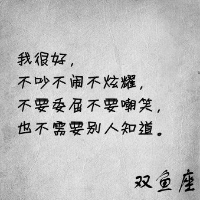 我很好，
不吵不闹不炫耀，
不要委屈不要嘲笑，
也不需要别人知道。
双鱼座